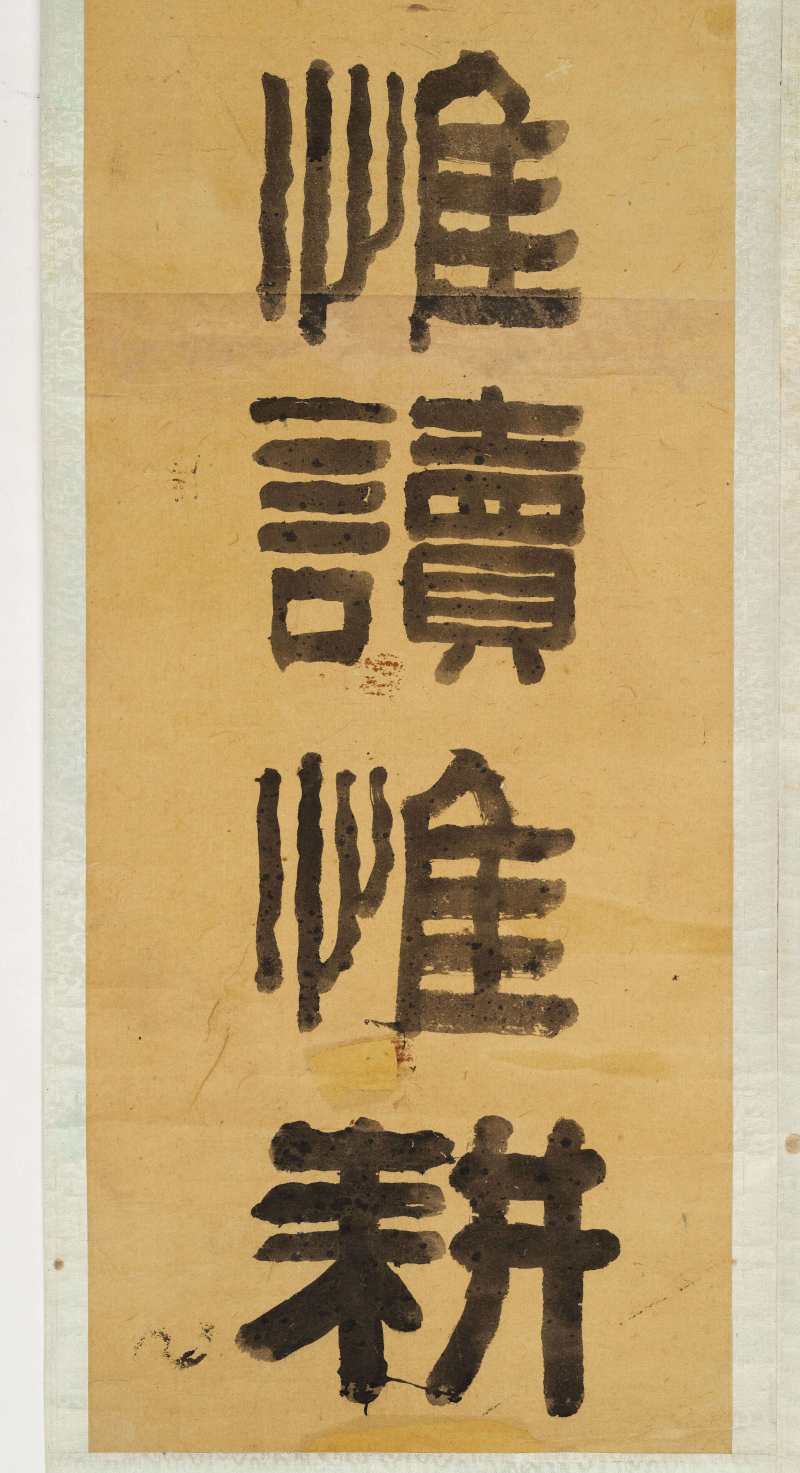 惟讀惟耕